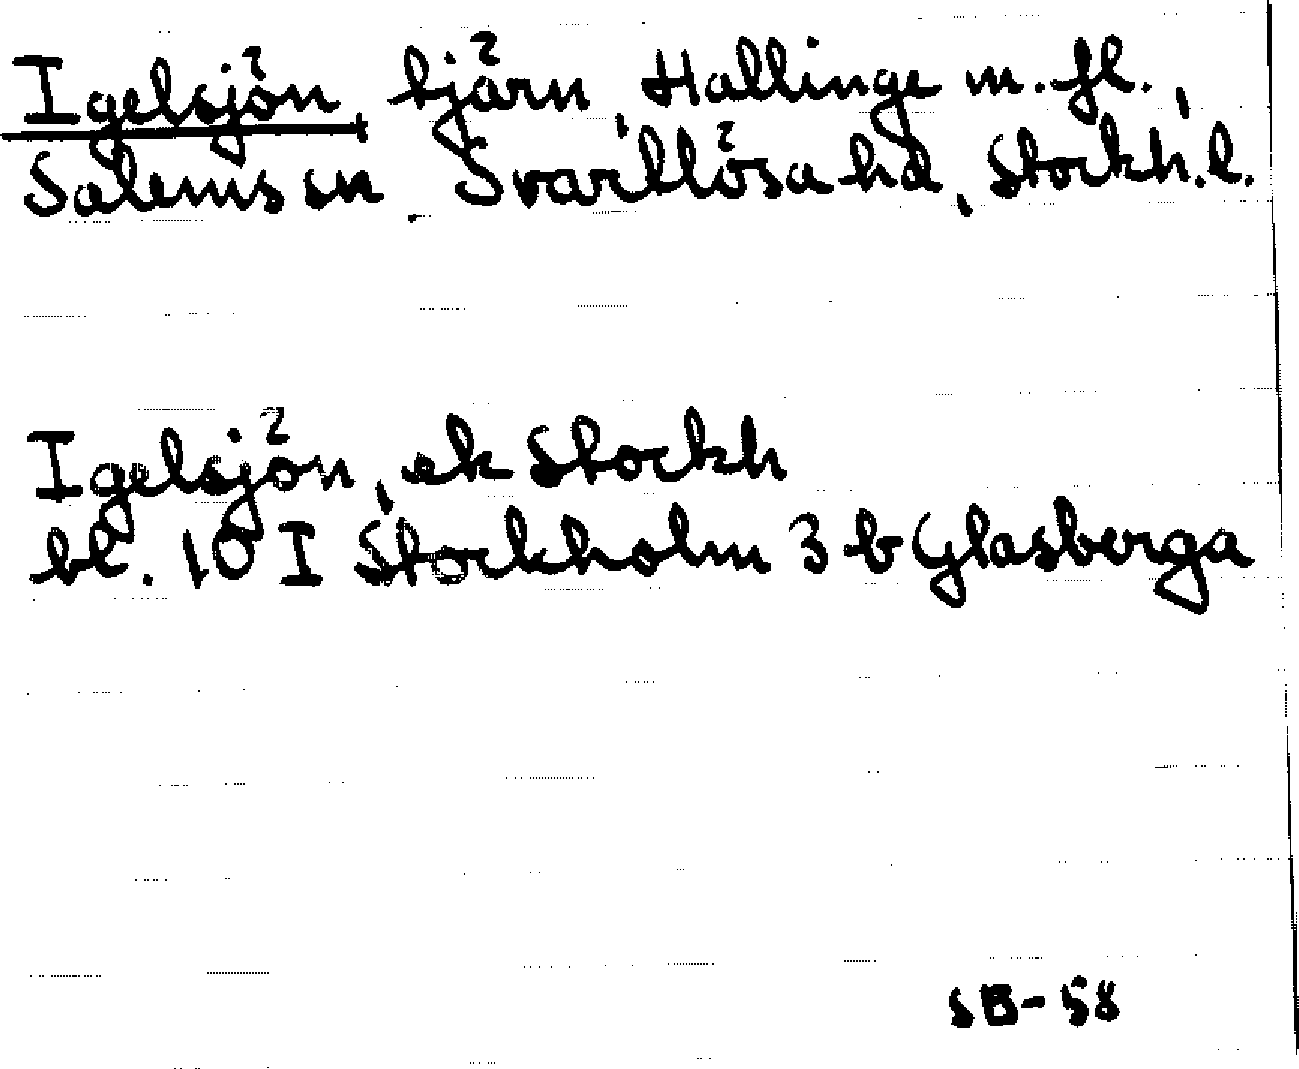 Igelsjön, tjärn, Hallinge m. fl.,
Salems sn, Svartlösa hd, Stockh. l.
Igelsjön, ek Stockh
bl. 10 I Stockholm 3 b Glasberga
SB-58